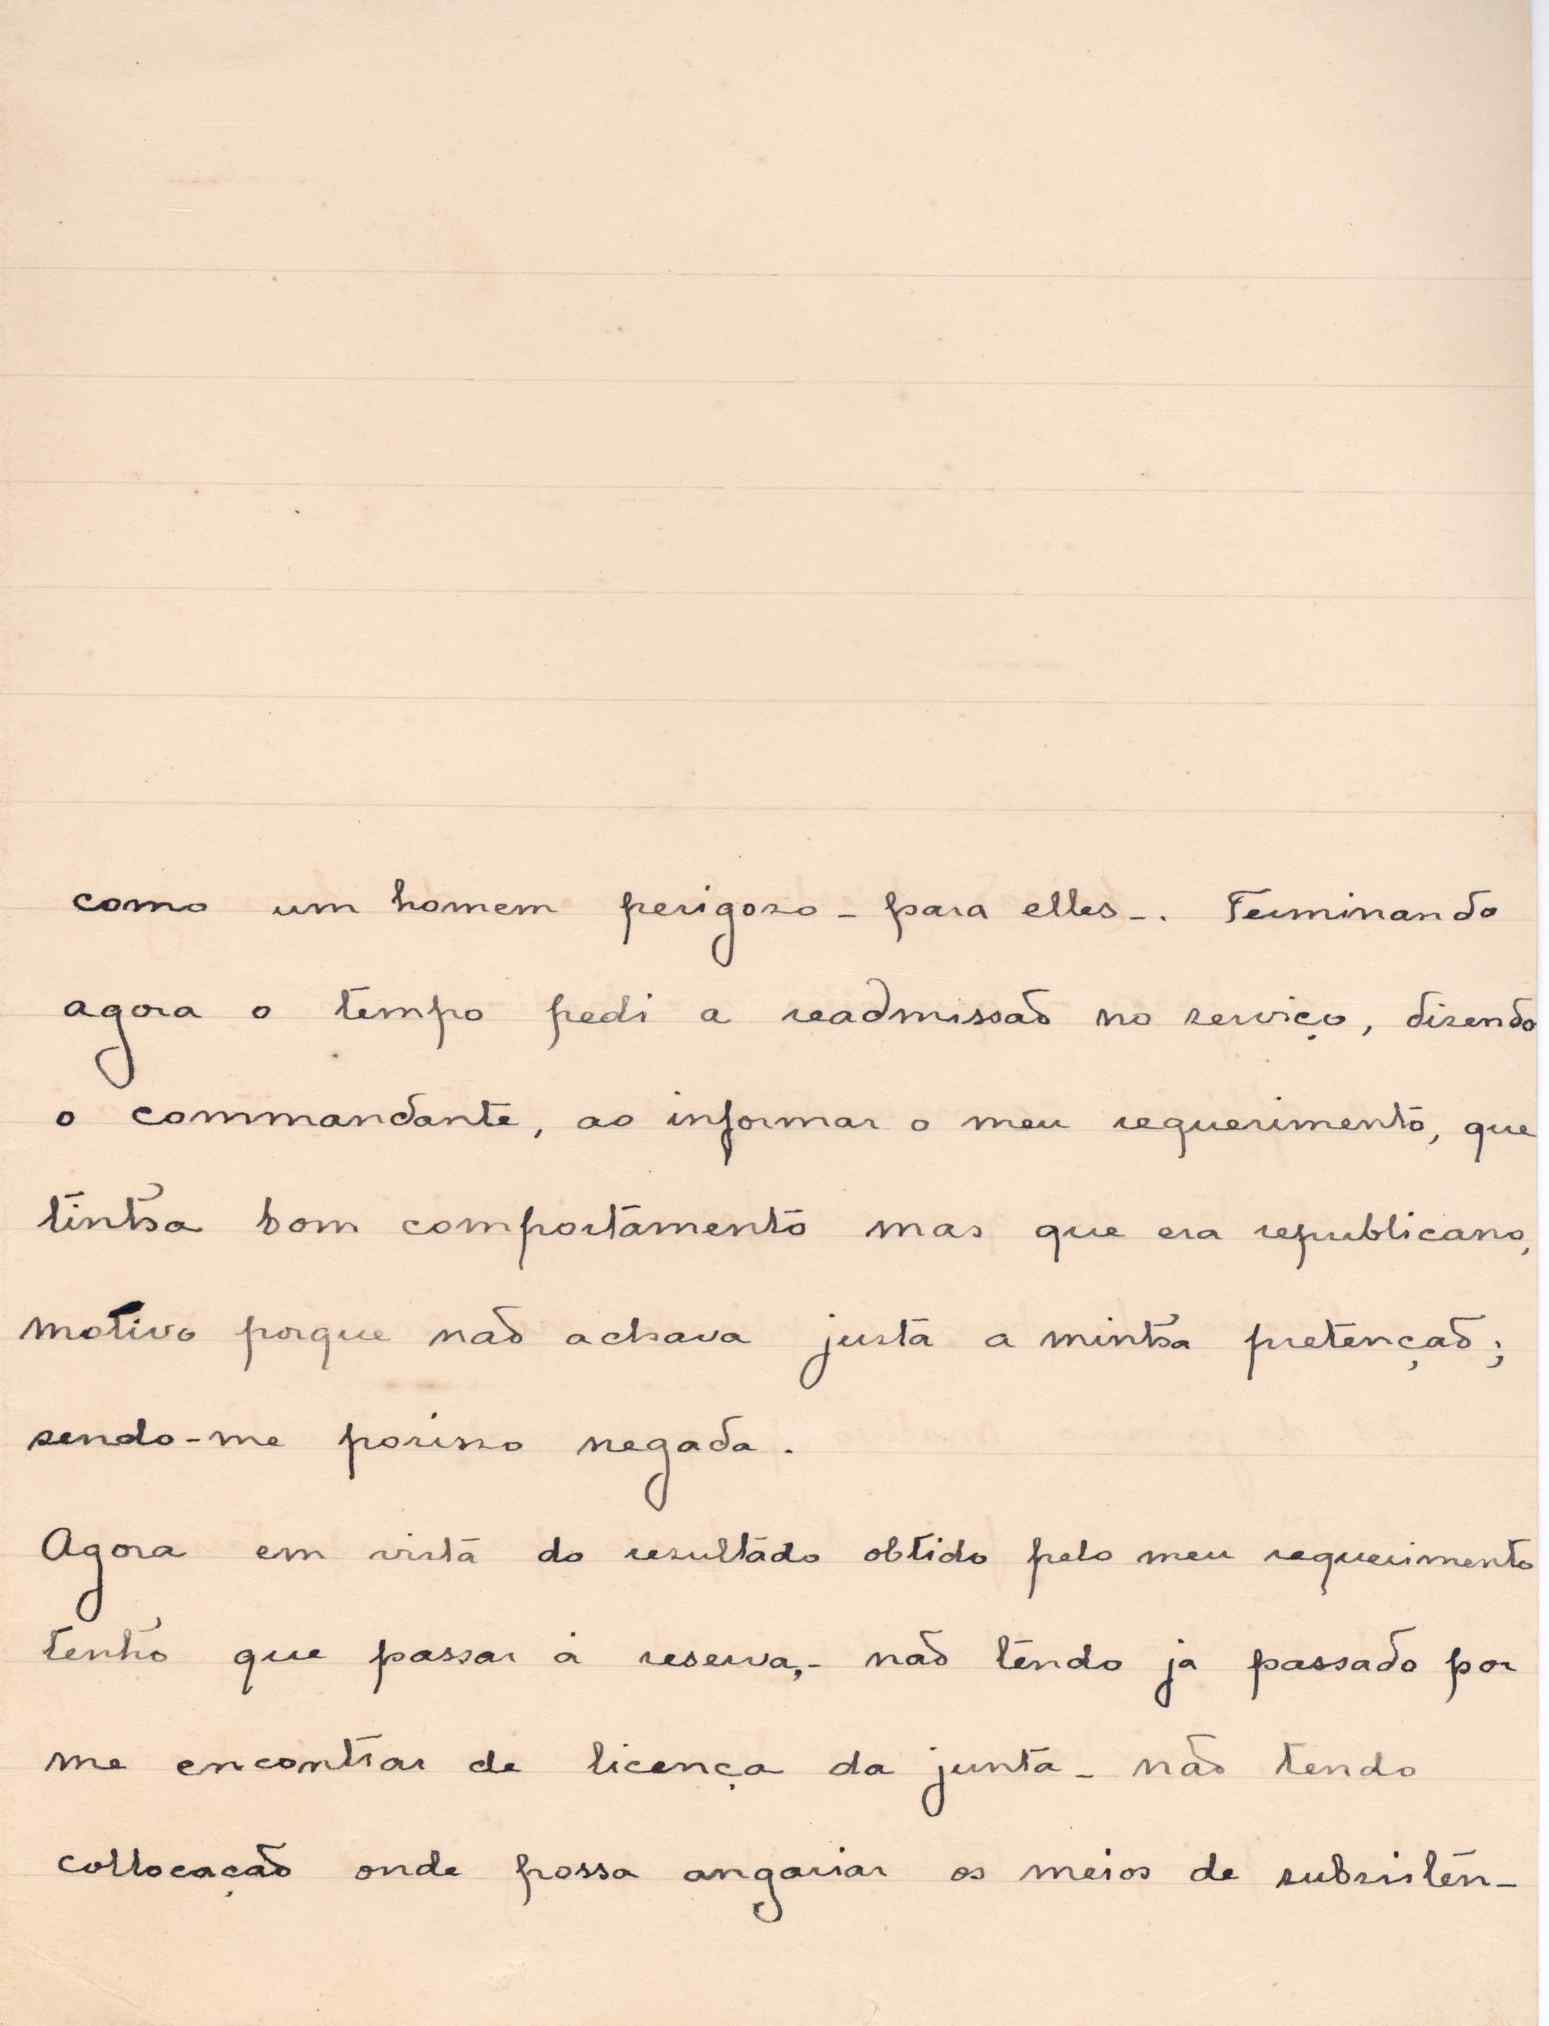 como um homem perigoso - para elles -. Terminando
agora o tempo pedi a readmissão no serviço, disendo
o commandante, ao informar o meu requerimento, que
tinha bom comportamento mas que era republicano,
motivo porque não achava justa a minha pretenção;
sendo-me porisso negada.
Agora em vista do resultado obtido pelo meu requerimento
tenho que passar á reserva, - não tendo já passado por
me encontrar de licença da junta - não tendo
collocação onde possa angariar os meios de subsistên-